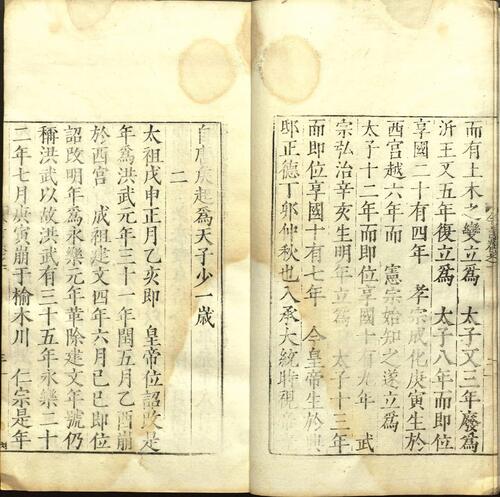 而有土木之變立爲 太子又三年廢爲
沂王又五年復立爲 太子八年而即位
享國二十有四年 孝宗成化庚寅生於
西宮越六年而 憲宗始知之遂立爲
太子十二年而即位享國十有九年 武
宗弘治辛亥生明年立爲 太子十三年
而即位享國十有七年 今皇帝生於興
邸正德丁卯仲秋也入承大統時視
自 起爲天子少一歲
二
太祖戊申正月乙亥即 皇帝位詔改是
年爲洪武元年三十一年閏五月乙酉崩
於西宮 成祖建文四年六月己巳即位
詔改明年爲永樂元年革除建文年號仍
稱洪武以故洪武有三十五年永樂二十
二年七月庚寅崩于榆木川 仁宗是年